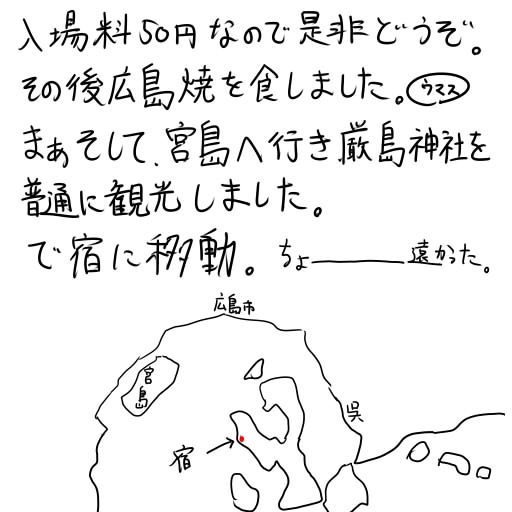 入場料50円なので是非どうぞ。
その後広島焼を食しました。ウマス
まぁそして、宮島へ行き厳島神社を
普通に観光しました。
で宿に移動。ちょ――――遠かった。
広島市
宮島
呉
宿